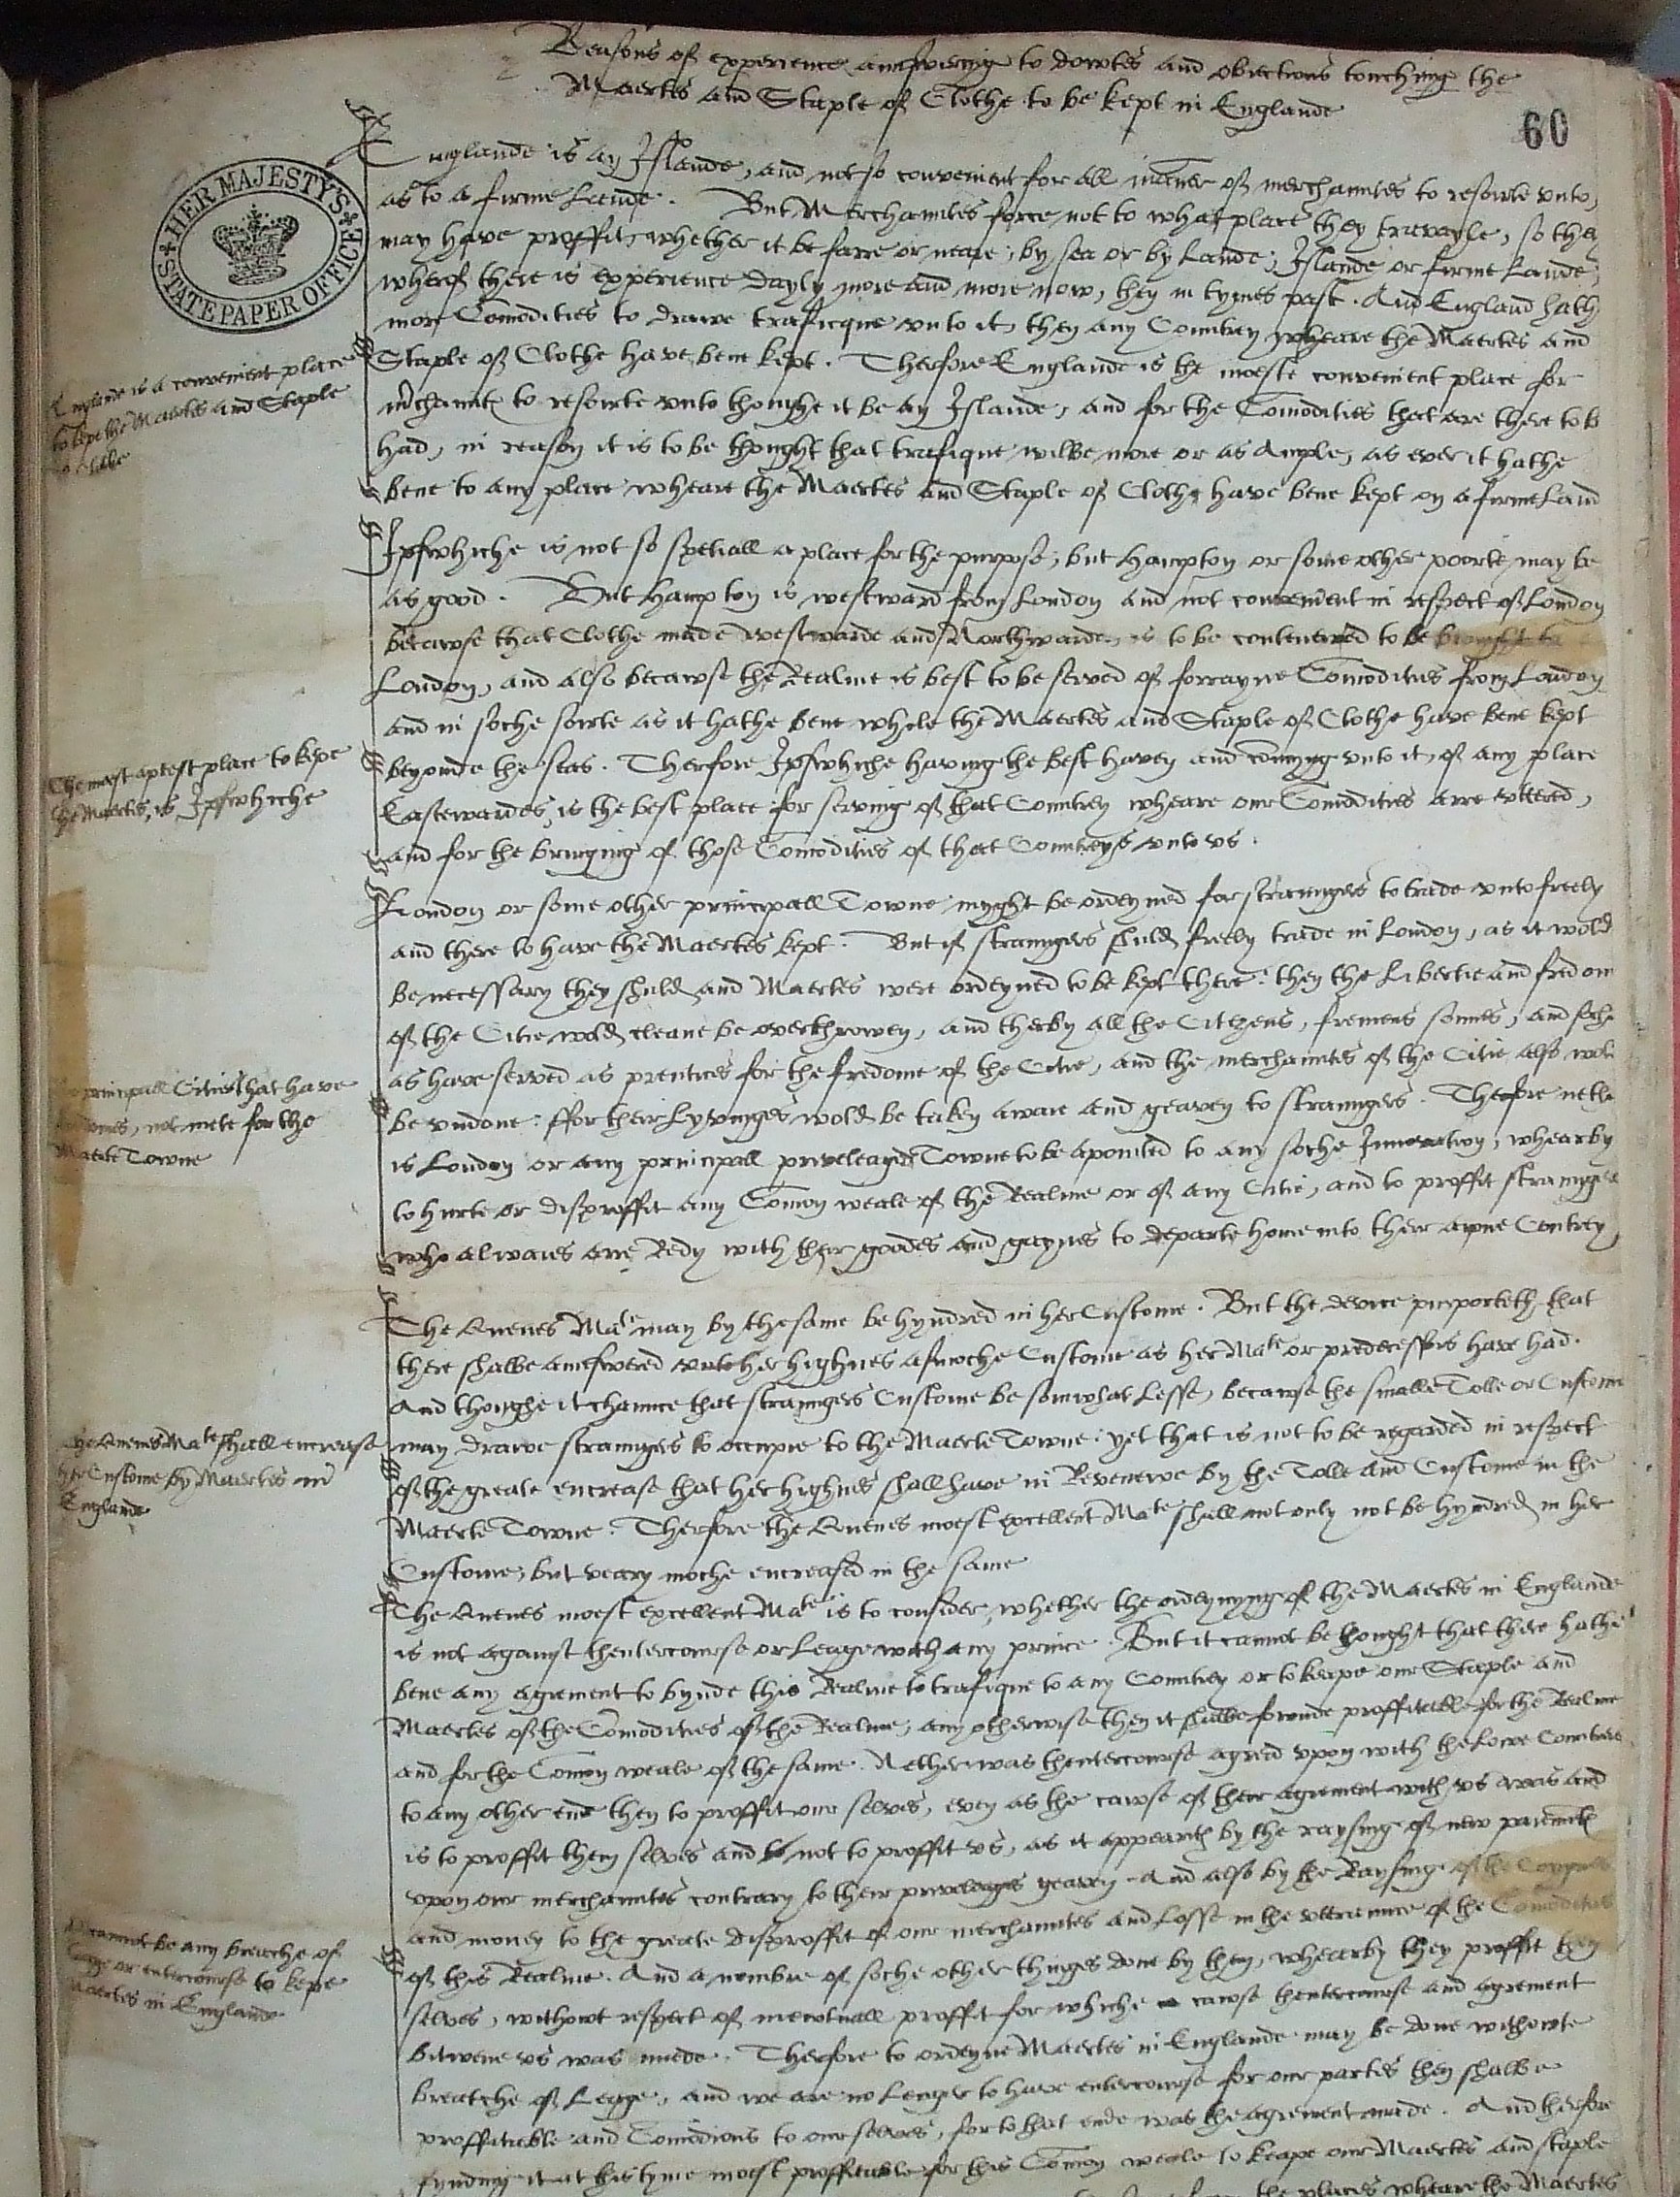 Reasons of experience answering to dowtes and obiections touching the
Maertes and Staple of Clothe to be kept in Englande
60
HER MAJESTY'S STATE PAPER OFFICE
Englande is an Islande, and not so convenient for all maner of merchauntes to resorte unto,
as to a firme Lande. But Merchauntes force not to what place they travayle, so they
may have proffit, whether it be farre or neare, by sea or by Lande, Islande or firme Lande,
wherof there is experience dayly more and more now, then in tymes past. And England hath
more Comodities to drawe traficque unto it, then any Countrey wheare the Maertes and
Staple of Clothe have bene kept. Therfore Englande is the moeste convenient place for
mchaunts to resorte unto thoughe it be an Islande, and for the Comodities that are there to be
had, in reason it is to be thought that trafique wilbe more or as Ample, as ever it hathe
bene to any place wheare the Maertes and Staple of Clothe have bene kept on a firme Land
Englande is a convenient place
to kepe the Maertes and Staple
Ipswhiche is not so speciall a place for the purpose, but Hampton or some other poorte may be
as good. But Hampton is westward from London and not convenient in respect of London
becawse that Clothe made westwarde and Northwarde, is to be contenewed to be brought to
London, and also becawse the Realme is best to be served of forrayne Comodities from London
and in soche sorte as it hathe bene while the Maertes and Staple of Clothe have bene kept
beyonde the seas. Therfore Ipswhiche having the best haven and coming unto it, of any place
Eastewardes, is the best place for serving of that Countrey wheare our Comodities arre uttered,
and for the bringing of those Comodities of that Countreys unto us.
The moest aptest place to kepe
the Maertes, is Ipswhiche
London or some other principall Towne myght be ordeyned for straungers to trade unto freely
and there to have the Maertes kept. But if straungers shuld freely trade in London, as it wold
be necessary they shuld and Maertes were ordeyned to be kept there: then the Libertie and fredom
of the Citie wold cleane be overthrowen, and therby all the Citizens, fremens sonnes, and soche
as have served as prentices for the fredome of the Citie, and the merchauntes of the Citie also wold
be undone: ffor their Lyvinges wold be taken awaie and geaven to straungers. Therfore nether
is London or any principall priveleaged Towne to be apointed to any soche Innovation, whearby
to hurte or disproffit any Comon weale of the Realme or of any Citie, and to proffit straungers
who alwaies arre Redy with their goodes and gaynes to departe home into their awne Contrey
principall Cities that have
not mete for the
Maerte Towne
The Quenes Mate may by the same be hyndred in her Custome. But the device purporteth that
there shalbe answered unto her highnes asmoche Custome as her Mate or predecessors have had.
And thoughe it chaunce that straungers Custome be somwhat Lesse, becawse the smalle Tolle or Custome
may drawe straungers to occupie to the Maerte Towne: yet that is not to be regarded in respect
of the greate encrease that her highnes shall have in Revenewe by the Tolle and Custome in the
Maerte Towne. Therfore the Quenes moest excellent Mate shall not only not be hyndred in her
Custome, but veary moche encreased in the same
The Quenes Mate shall encrease
her Custome by Maertes in
Englande
The Quenes moest excellent Mate is to consider, whether the ordeynyng of the Maertes in Englande
is not against thentercourse or Leage with any prince. But it cannot be thought that there hathe
bene any agrement to bynde this Realme to trafique to any Countrey or to keape our Staple and
Maertes of the Comodities of the Realme, any otherwise then it shalbe founde proffitable for the Realme
and for the Comon weale of the same. Nether was thentercourse agreed upon with the Lowe Countries
to any other ende then to proffit our selves, even as the cawse of their agrement with us was and
is to proffit them selves and not to proffit us, as it appearith by the raysing of new paiements
upon our merchauntes contrary to their priveleages geaven. And also by the Raysing of the Coynes
and money to the greate disproffit of our merchauntes and Losse in the utteraunce of the Comodities
of this Realme. And a nombre of soche other thinges done by them, whearby they proffit them
selves, without respect of mewtuall proffit for whiche cawse thentercourse and agrement
bitwene us was made. Therfore to ordeyne Maertes in Englande may be done withowte
breatche of Leage, and we are no Lenger to have entercourse for our partes then shalbe
proffitable and Comodious to our selves, for to that ende was the agrement made. And therfore
fynding it at this tyme moest proffitable for this Comon weale to keape our Maertes and staple
the places wheare the Maertes
cannot be any breache of
Leage or entercourse to kepe
Maertes in Englande